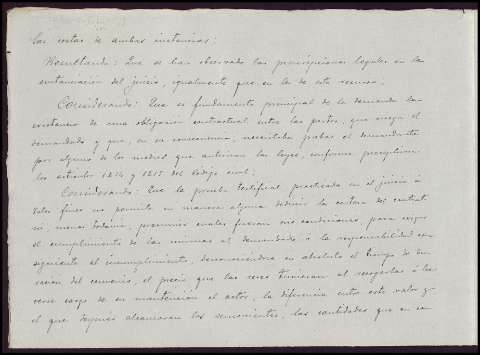 las costas de ambas instancias;
Resultando: Que se han observado las prescripciones legales en la
sustanciación del juicio, igualmente que en la de este recurso.
Considerando: Que es fundamento principal de la demanda la
existencia de una obligación contractual entre las partes, que niega el
demandado y que, en su consecuencia, necesitaba probar el demandante
por alguno de los medios que autorizan las leyes, conforme preceptúan
los artículos 1214 y 1215 del Código civil;
Considerando: Que la prueba testifical practicada en el juicio á
estos fines no permite en manera alguna deducir la certeza del contrato
ni, menos todavía, presumir cuales fueran sus condiciones para exigir
el cumplimiento de las mismas al demandado ó la responsabilidad con-
siguiente al incumplimiento, desconociéndose en absoluto el tiempo de du-
ración del convenio, el precio que las reses tuvieran al recogerlas ó ha-
cerse cargo de su mantención el actor, la diferencia entre este valor y
el que después alcanzaran los semovientes, las cantidades que en su